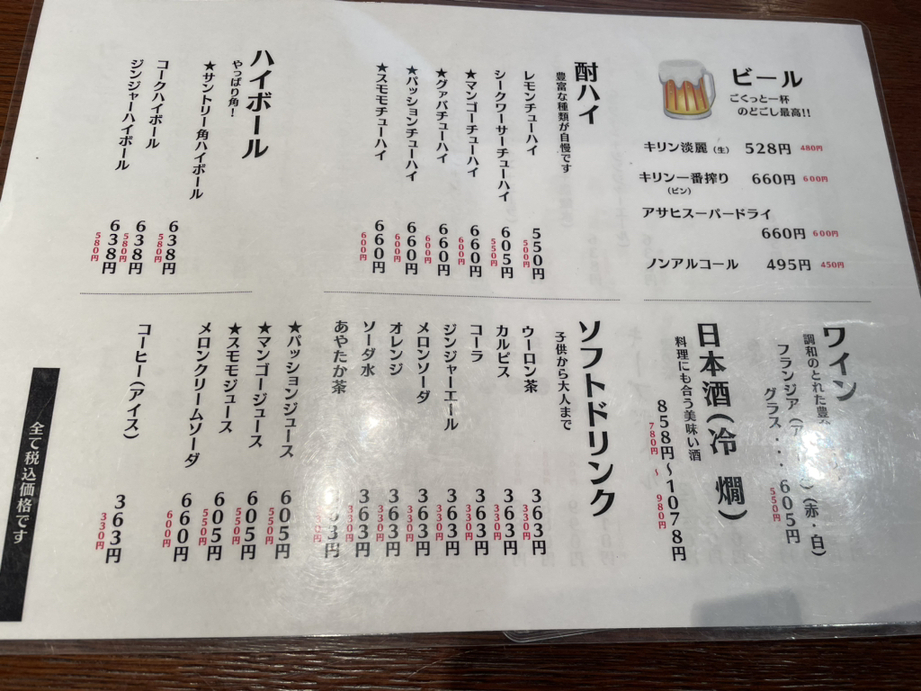 ビール
ごくっと一杯
のどごし最高!!
キリン淡麗(生) 528円 480円
キリン一番搾り 660円 600円
(ビン)
アサヒスーパードライ
660円 600円
ノンアルコール 495円 450円
酎ハイ
豊富な種類が自慢です
レモンチューハイ 550円 500円
シークワーサーチューハイ 605円 550円
★マンゴーチューハイ 660円 600円
★グァバチューハイ 660円 600円
★パッションチューハイ 660円 600円
★スモモチューハイ 660円 600円
ハイボール
やっぱり角!
★サントリー角ハイボール 638円 580円
コークハイボール 638円 580円
ジンジャーハイボール 638円 580円
ワイン
調和のとれた豊
フランジア(ア )(赤・白)
グラス・・・605円
550円
日本酒(冷 燗)
料理にも合う美味い酒
858円~1078円
780円 ~ 980円
ソフトドリンク
子供から大人まで
ウーロン茶 363円 330円
カルピス 363円 330円
コーラ 363円 330円
ジンジャーエール 363円 330円
メロンソーダ 363円 330円
オレンジ 363円 330円
ソーダ水 363円 330円
あやたか茶 63円
★パッションジュース 605円 550円
★マンゴージュース 605円 550円
★スモモジュース 605円 550円
メロンクリームソーダ 660円 600円
コーヒー(アイス) 363円 330円
全て税込価格です